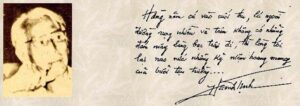 Hằng năm cứ vào cuối thu, lá ngoài
đường rụng nhiều và trên không có những
đám mây bàng bạc, lòng tôi
lại nao nức những kỷ niệm hoang mang
của buổi tựu trường...